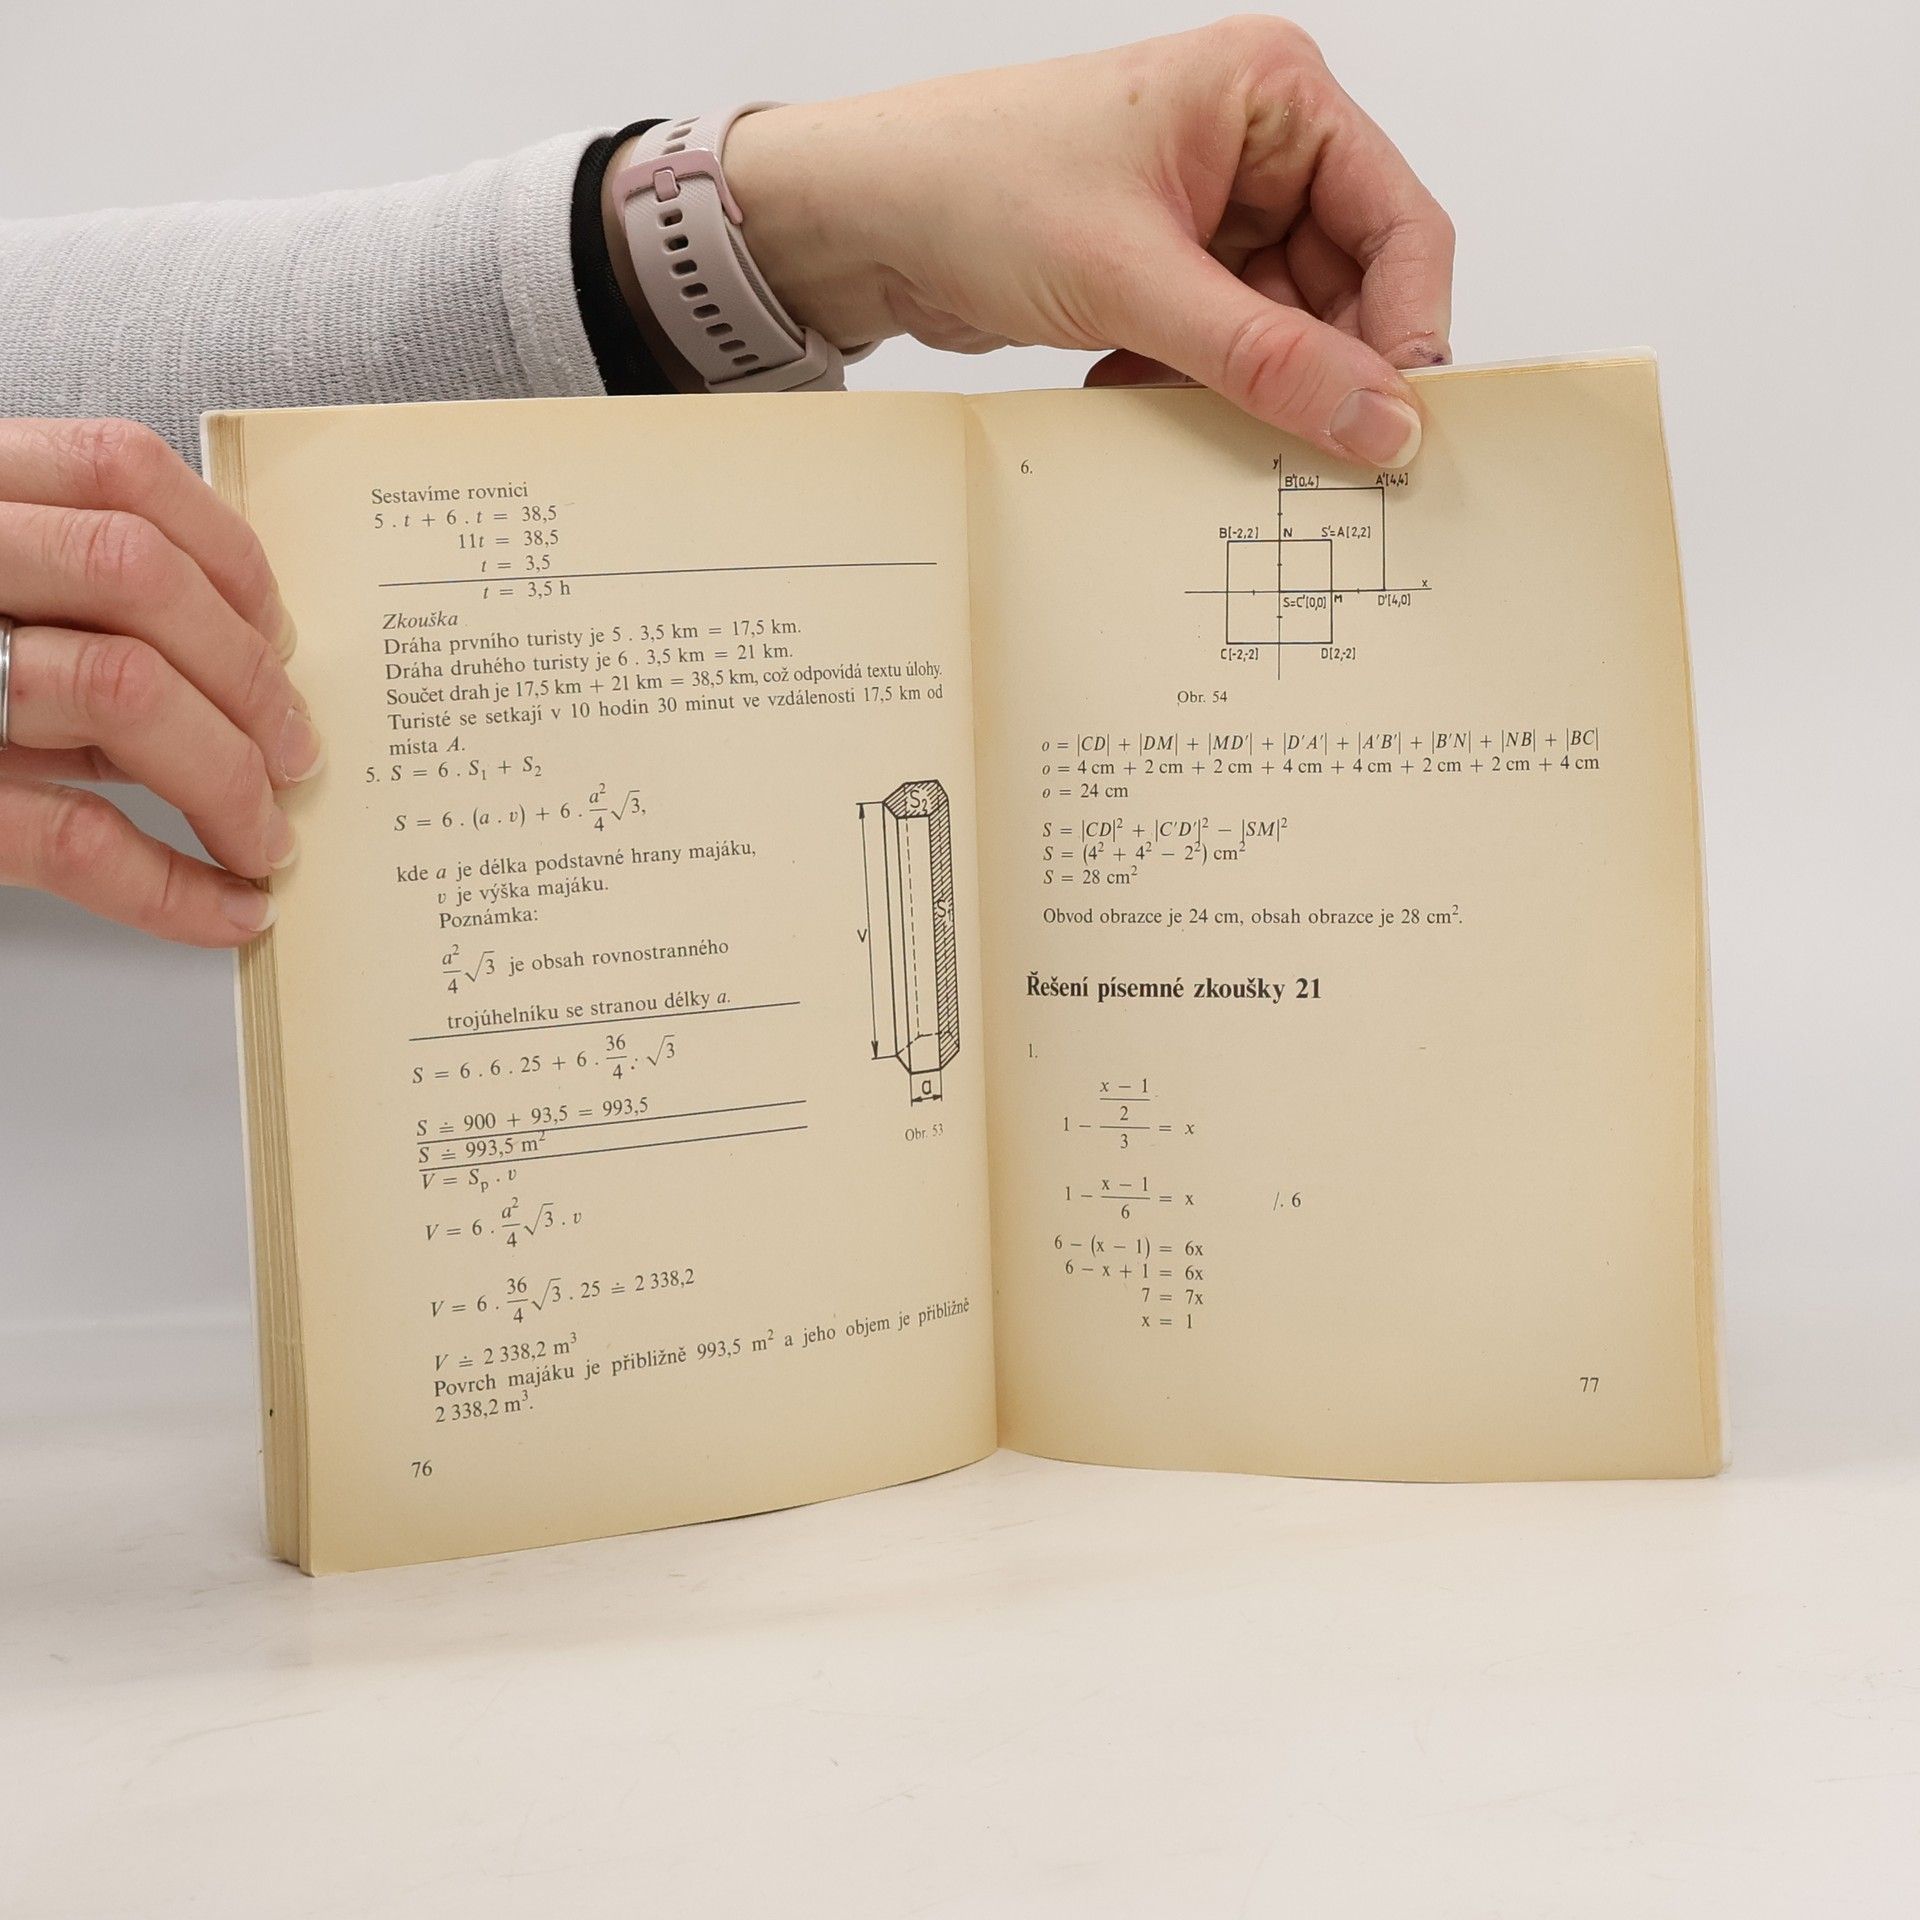 Sestavíme rovnici
5 . t + 6 . t = 38,5
11t = 38,5
t = 3,5
t = 3,5 h
Zkouška
Dráha prvního turisty je 5 . 3,5 km = 17,5 km.
Dráha druhého turisty je 6 . 3,5 km = 21 km.
Součet drah je 17,5 km + 21 km = 38,5 km, což odpovídá textu úlohy.
Turisté se setkají v 10 hodin 30 minut ve vzdálenosti 17,5 km od
místa A.
5. S = 6 . S₁ + S₂
S = 6 . (a . v) + 6 . a²/4 √3,
kde a je délka podstavné hrany majáku,
v je výška majáku.
Poznámka:
a²/4 √3 je obsah rovnostranného
trojúhelníku se stranou délky a.
S = 6 . 6 . 25 + 6 . 36/4 . √3
S ≐ 900 + 93,5 = 993,5
S ≐ 993,5 m²
V = Sₚ . v
V = 6 . a²/4 √3 . v
V = 6 . 36/4 √3 . 25 ≐ 2 338,2
V ≐ 2 338,2 m³
Povrch majáku je přibližně 993,5 m² a jeho objem je přibližně
2 338,2 m³.
S₂
S₁
v
a
Obr. 53
76
6.
y
B'[0,4] A'[4,4]
B[-2,2] N S'=A[2,2]
x
S=C'[0,0] M D'[4,0]
C[-2,-2] D[2,-2]
Obr. 54
o = |CD| + |DM| + |MD'| + |D'A'| + |A'B'| + |B'N| + |NB| + |BC|
o = 4 cm + 2 cm + 2 cm + 4 cm + 4 cm + 2 cm + 2 cm + 4 cm
o = 24 cm
S = |CD|² + |C'D'|² − |SM|²
S = (4² + 4² − 2²) cm²
S = 28 cm²
Obvod obrazce je 24 cm, obsah obrazce je 28 cm².
Řešení písemné zkoušky 21
1.
x − 1
2
1 − = x
3
1 − (x − 1)/6 = x /. 6
6 − (x − 1) = 6x
6 − x + 1 = 6x
7 = 7x
x = 1
77